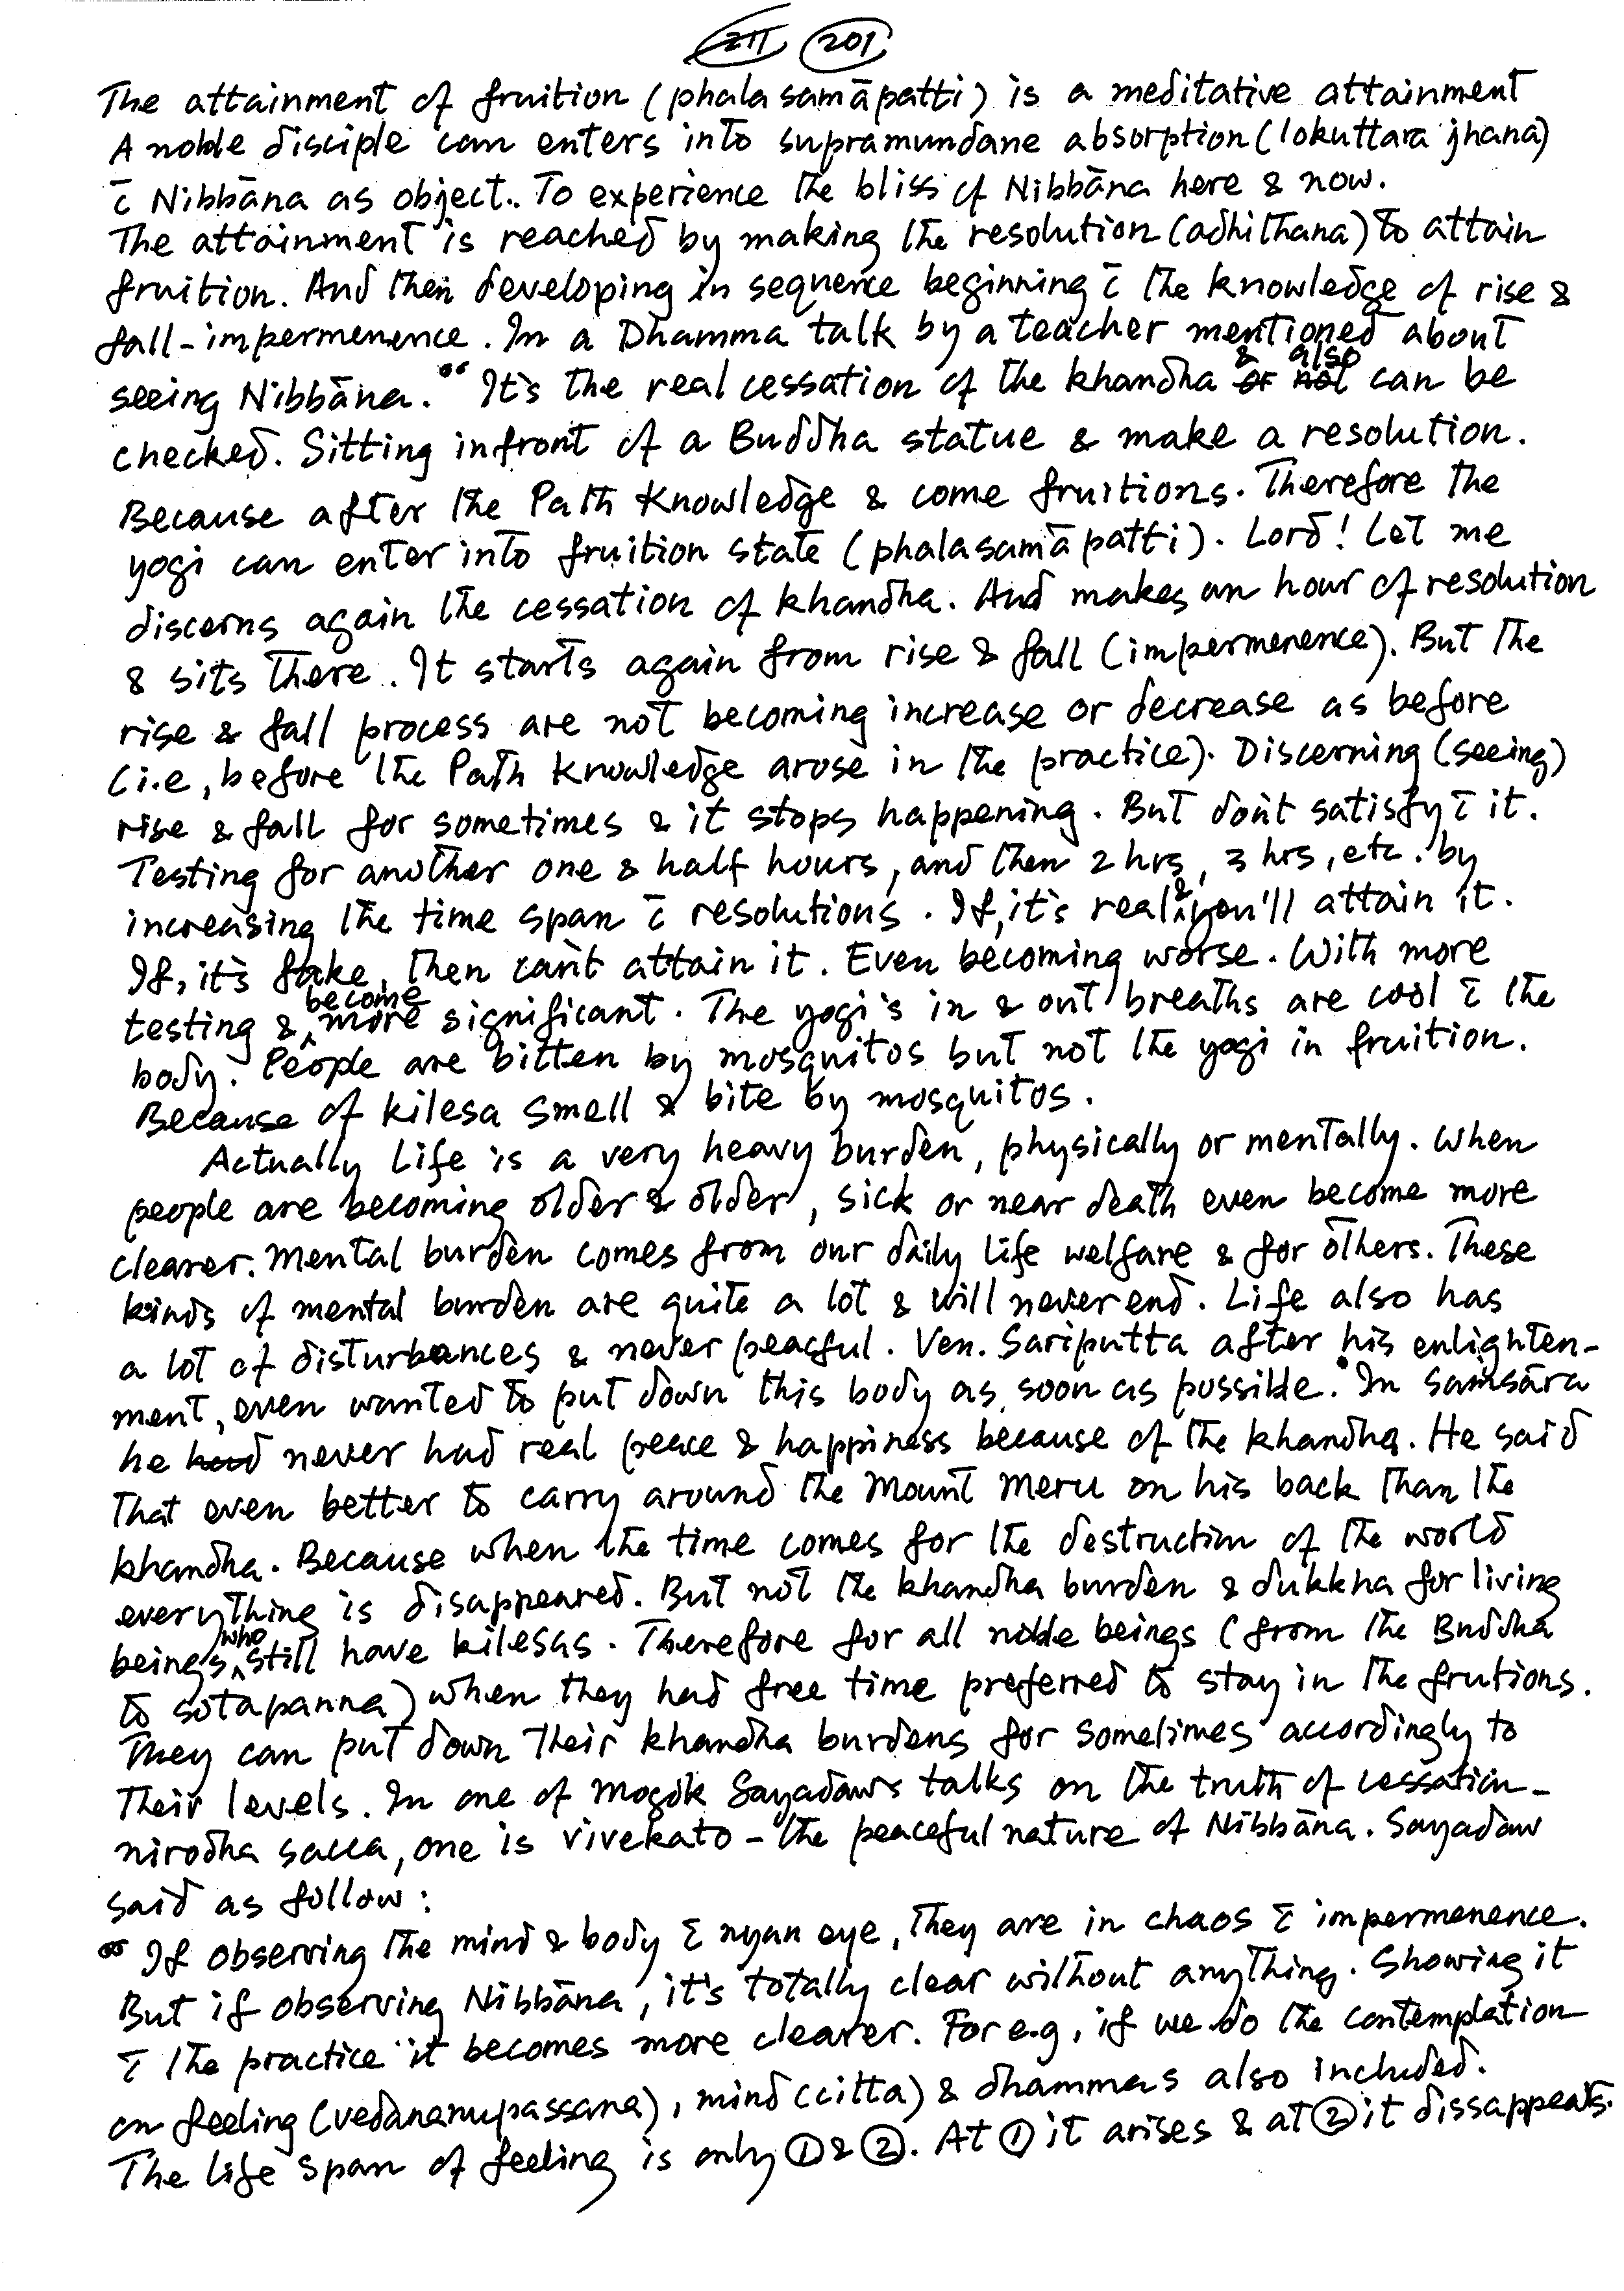 201
The attainment of fruition (phala samāpatti) is a meditative attainment
A noble disciple can enters into supramundane absorption (lokuttara jhana)
c̄ Nibbāna as object. To experience the bliss of Nibbāna here & now.
The attainment is reached by making the resolution (adhithana) to attain
fruition. And then developing in sequence beginning c̄ the knowledge of rise &
fall-impermenence. In a Dhamma talk by a teacher mentioned about
seeing Nibbāna. "It's the real cessation of the khandha & also can be
checked. Sitting infront of a Buddha statue & make a resolution.
Because after the Path Knowledge & come fruitions. Therefore the
yogi can enter into fruition state (phalasamāpatti). Lord! Let me
discerns again the cessation of khandha. And makes an hour of resolution
& sits there. It starts again from rise & fall (impermenence). But the
rise & fall process are not becoming increase or decrease as before
(i.e, before the Path Knowledge arose in the practice). Discerning (seeing)
rise & fall for sometimes & it stops happening. But don't satisfy c̄ it.
Testing for another one & half hours, and then 2 hrs, 3 hrs, etc. by
increasing the time span c̄ resolutions. If, it's real & you'll attain it.
If, it's fake, then can't attain it. Even becoming worse. With more
testing & become more significant. The yogi's in & out breaths are cool c̄ the
body. People are bitten by mosquitos but not the yogi in fruition.
Because of kilesa smell & bite by mosquitos.
Actually Life is a very heavy burden, physically or mentally. When
people are becoming older & older, sick or near death even become more
clearer. Mental burden comes from our daily life welfare & for others. These
kinds of mental burden are quite a lot & will never end. Life also has
a lot of disturbances & never peacful. Ven. Sariputta after his enlighten-
ment, even wanted to put down this body as soon as possible. In samsāra
he never had real peace & happiness because of the khandha. He said
that even better to carry around the Mount Meru on his back than the
khandha. Because when the time comes for the destruction of the world
everything is disappeared. But not the khandha burden & dukkha for living
beings who still have kilesas. Therefore for all noble beings (from the Buddha
to sotapanna) when they had free time preferred to stay in the frutions.
They can put down their khandha burdens for sometimes accordingly to
their levels. In one of Mogok Sayadaw's talks on the truth of cessation-
nirodha sacca, one is vivekato - the peaceful nature of Nibbāna. Sayadaw
said as follow:
"If observing the mind & body c̄ nyan eye, they are in chaos c̄ impermenence.
But if observing Nibbāna, it's totally clear without anything. Showing it
c̄ the practice it becomes more clearer. For e.g, if we do the contemplation
on feeling (vedananupassana), mind (citta) & dhammas also included.
The life span of feeling is only ① & ②. At ① it arises & at ② it dissappears.